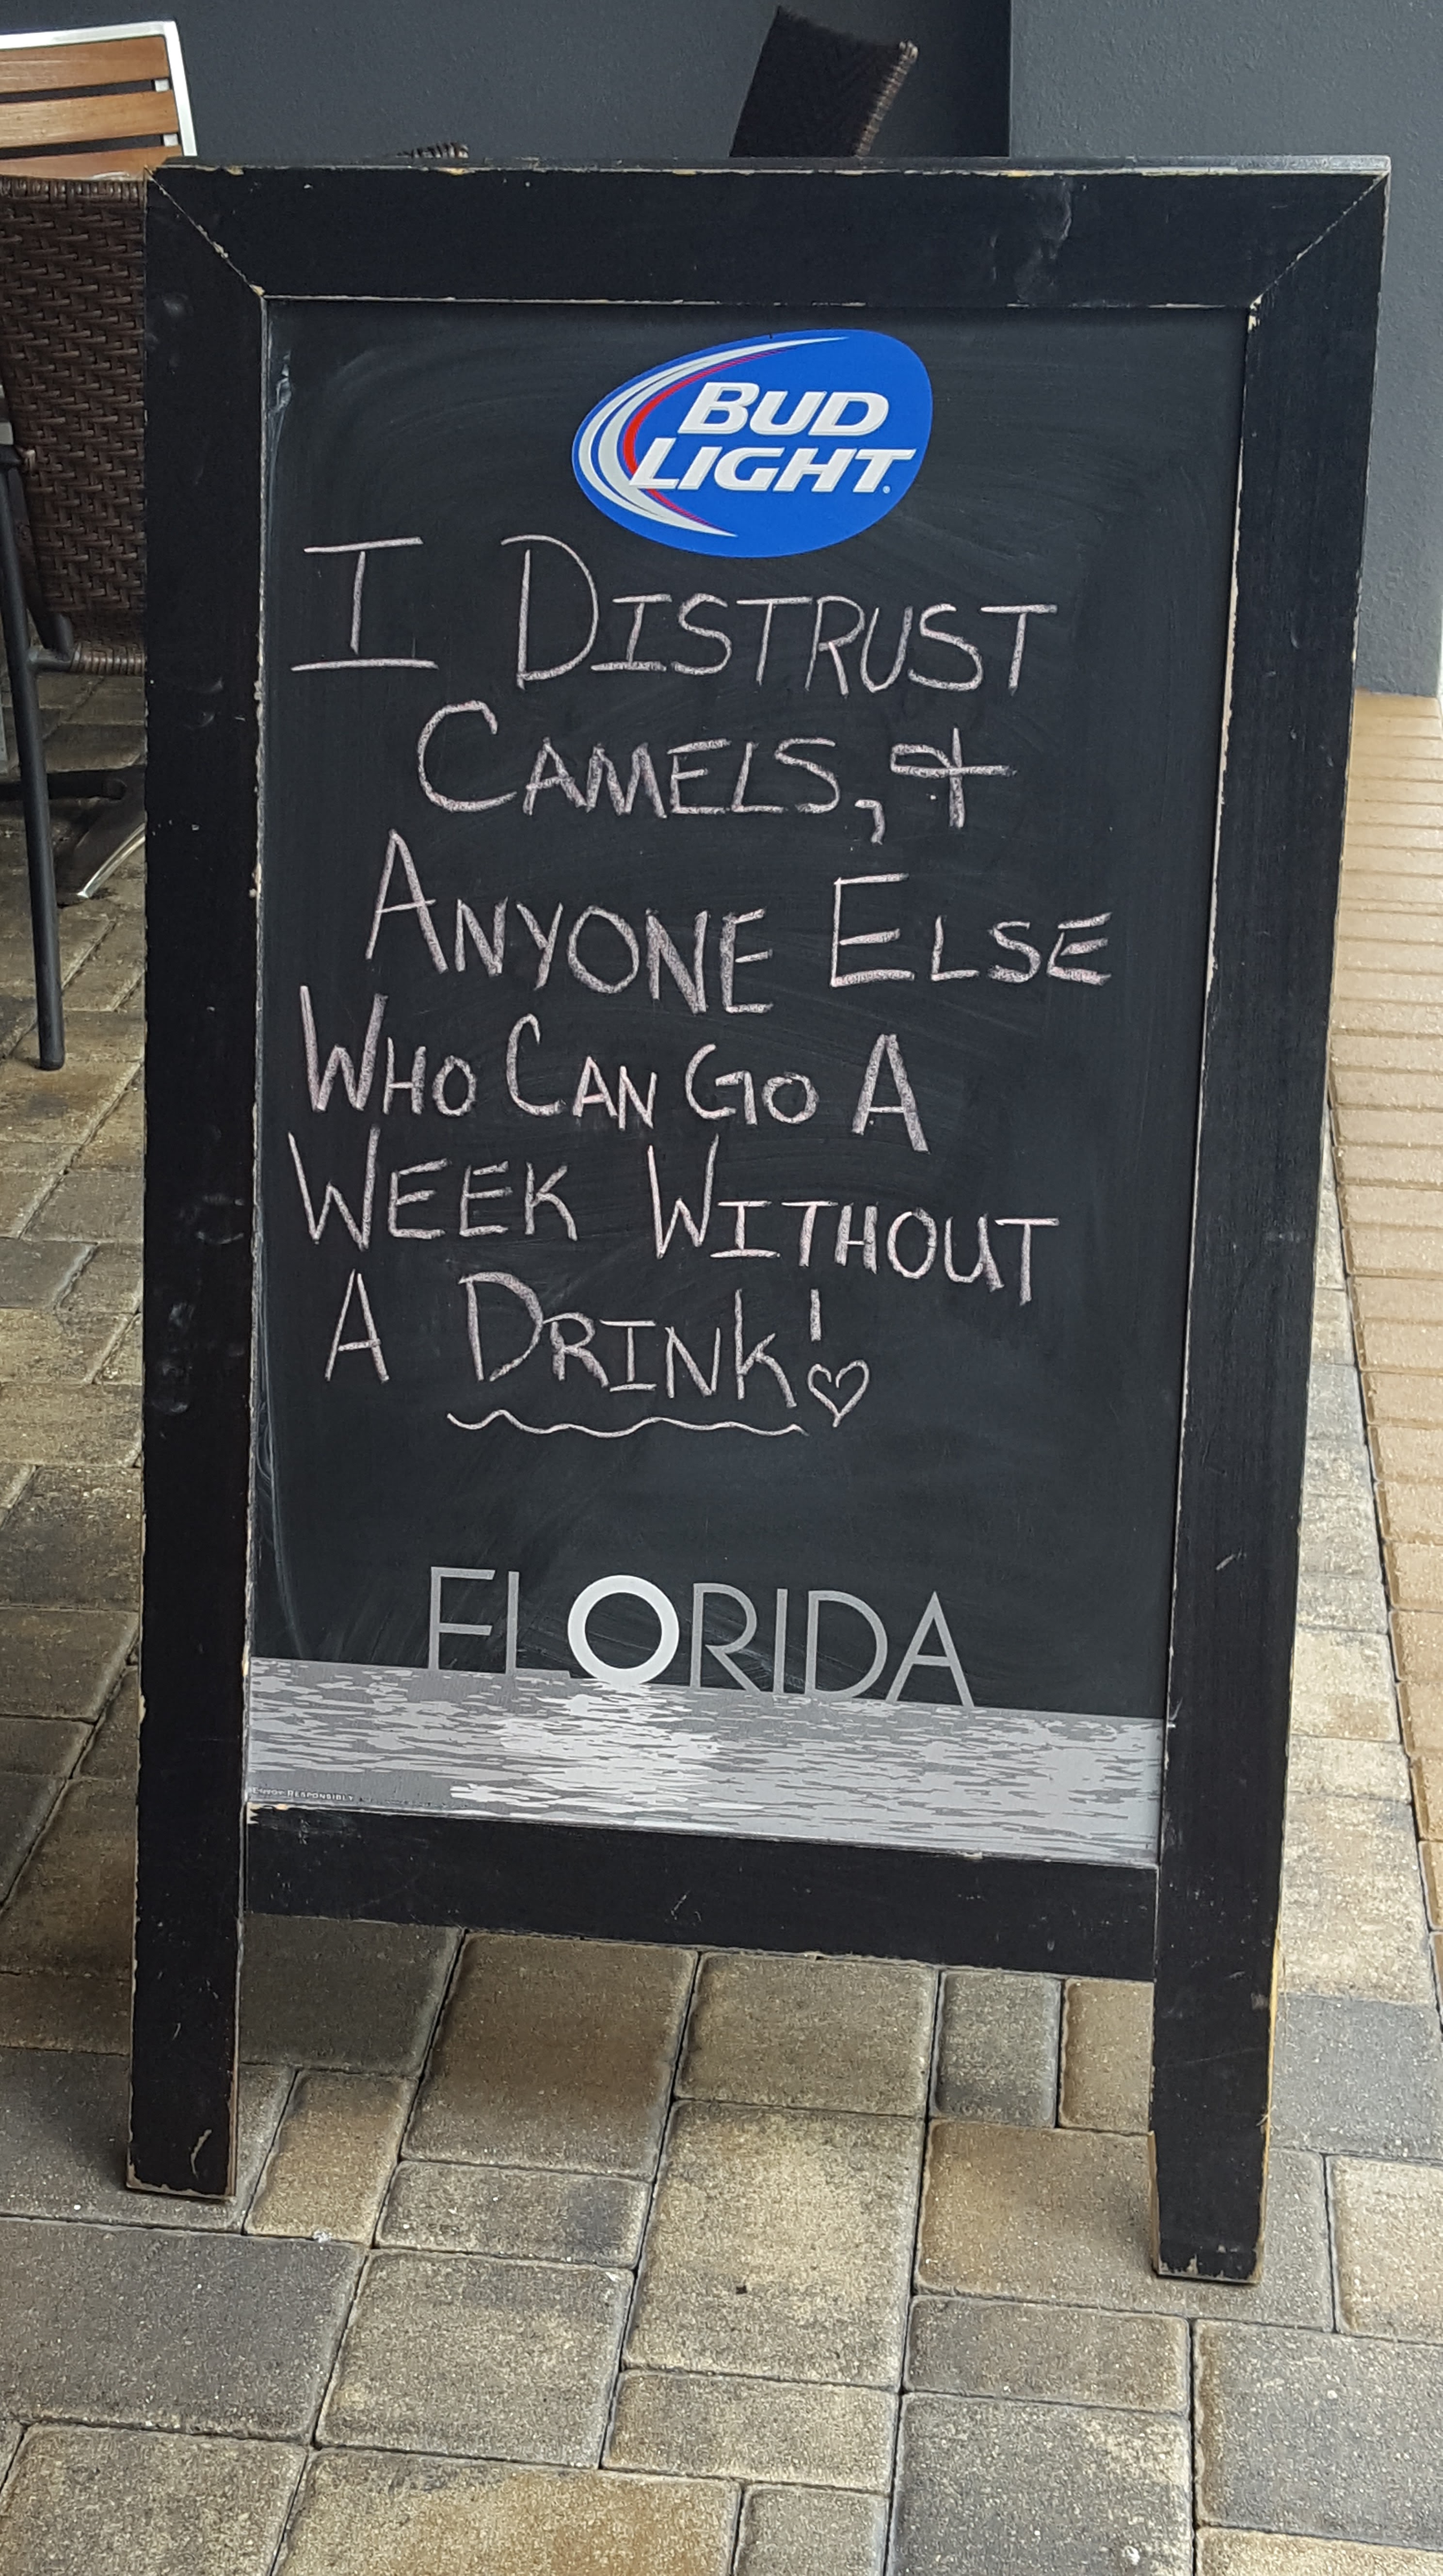 BUD
LIGHT®
I DISTRUST
CAMELS, &
ANYONE ELSE
WHO CAN GO A
WEEK WITHOUT
A DRINK!
FLORIDA
ENJOY RESPONSIBLY